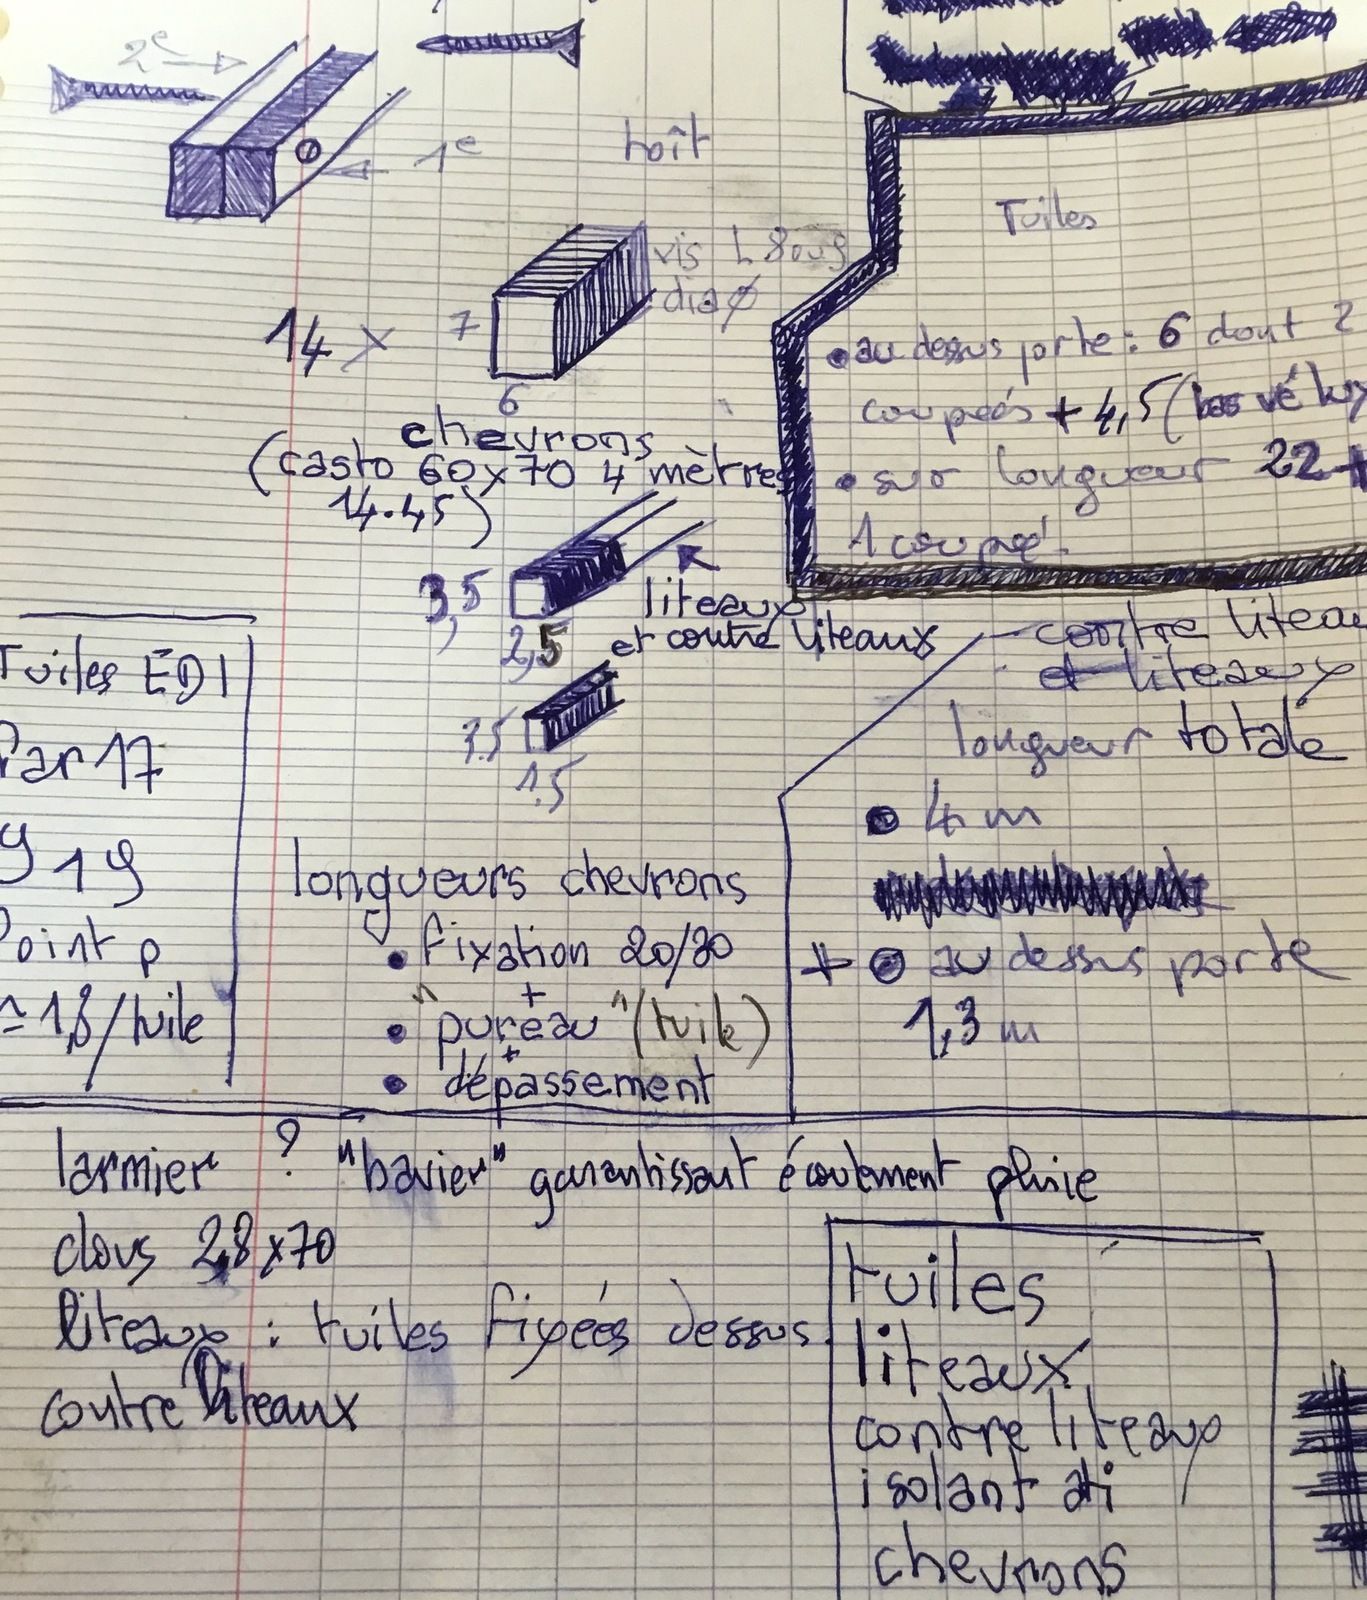 2e
1e
toît
vis L 8 ou 9
dia ø
14 x
7
6
chevrons
(casto 60x70 4 mètres
14.45)
3,5
2,5
liteaux
et contre liteaux
3.5
1.5
Tuiles
• au dessus porte : 6 dont 2
coupeés + 4,5 (bas vélux
• sur longueur 22 +
1 coupeé.
Tuiles EDI
Par 17
19
Point p
≃ 1,8/tuile
longueurs chevrons
• fixation 20/20
+
• "pureau" (tuile)
+
• dépassement
contre liteau
et liteaux
longueur totale
• 4 m
+ • au dessus porte
1,3 m
larmier ? "bavier" garantissant écoulement pluie
clous 2,8x70
liteaux : tuiles fixeés dessus
contre liteaux
tuiles
liteaux
contre liteaux
isolant
chevrons